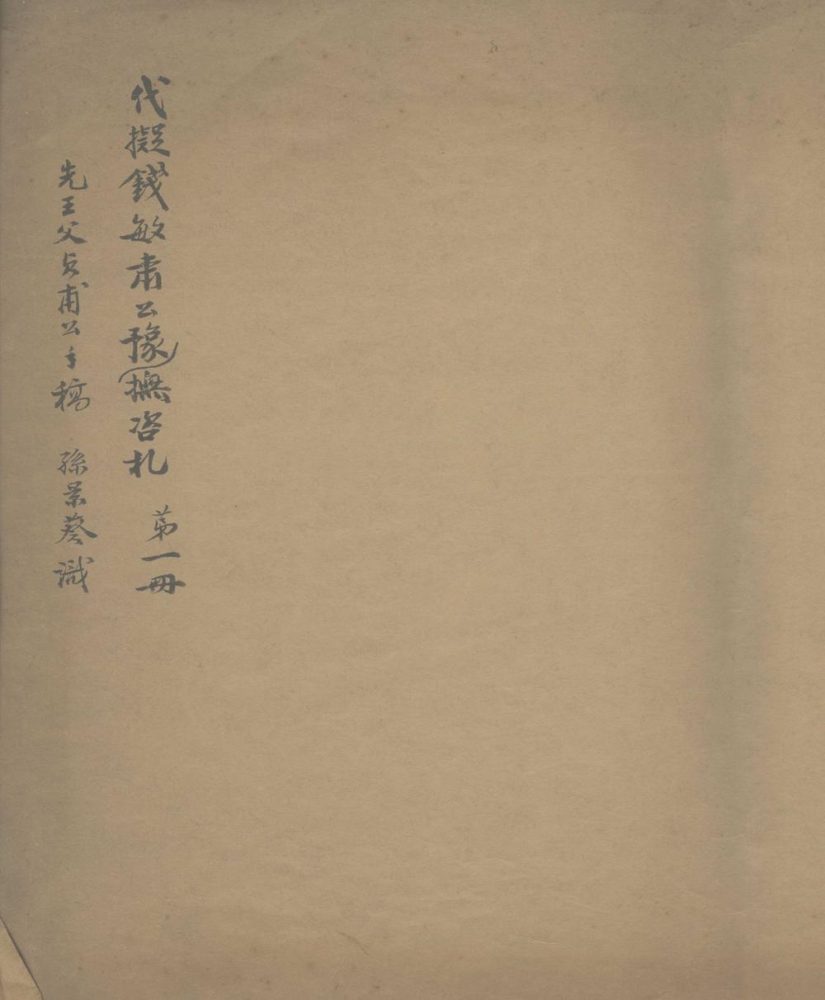 代擬錢敏肅公豫撫咨札 第一冊
先王父貞甫公手稿 孫景葵識